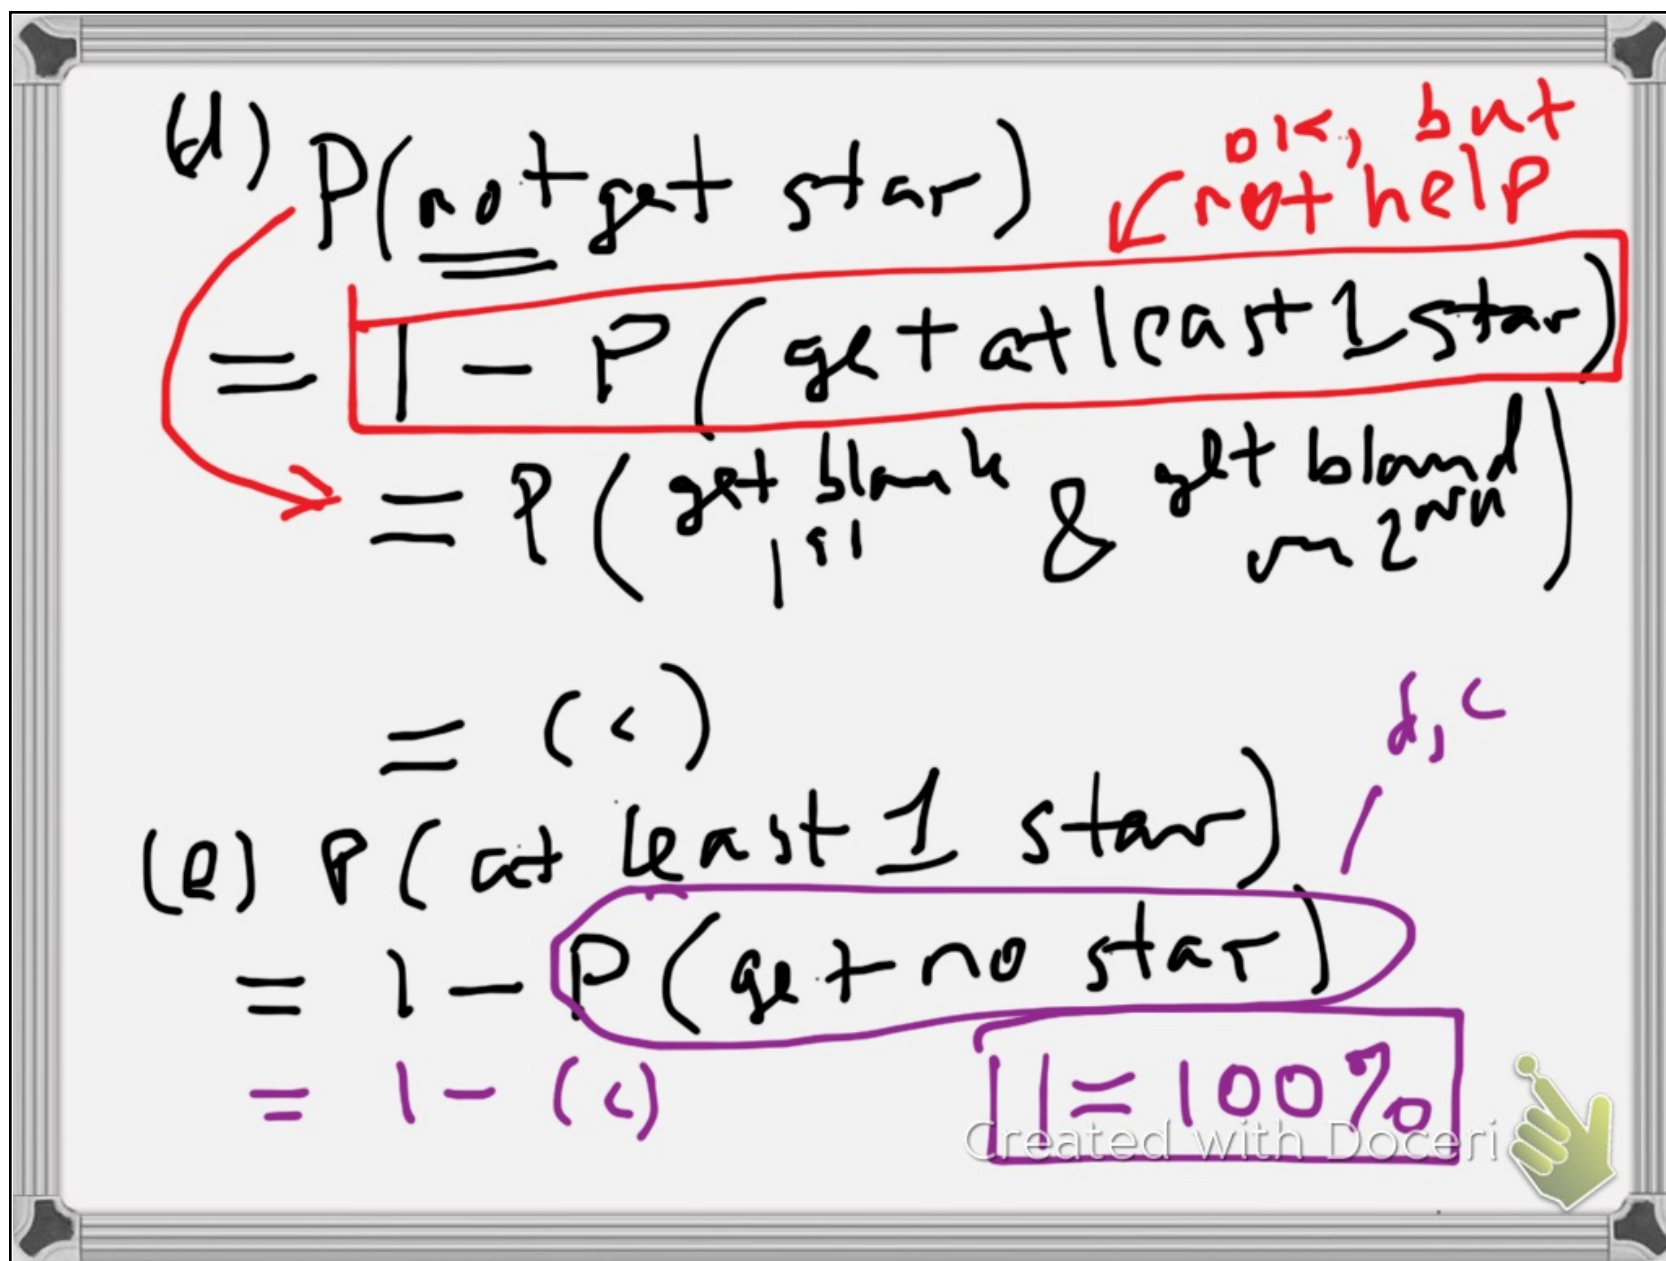 (d) P(not get star)
ok, but
not help
= 1 - P(get at least 1 star)
= P(get blank & get bland
1st on 2nd)
= (c)
d, c
(e) P(at least 1 star)
= 1 - P(get no star)
= 1 - (c)
1 = 100%
Created with Doceri